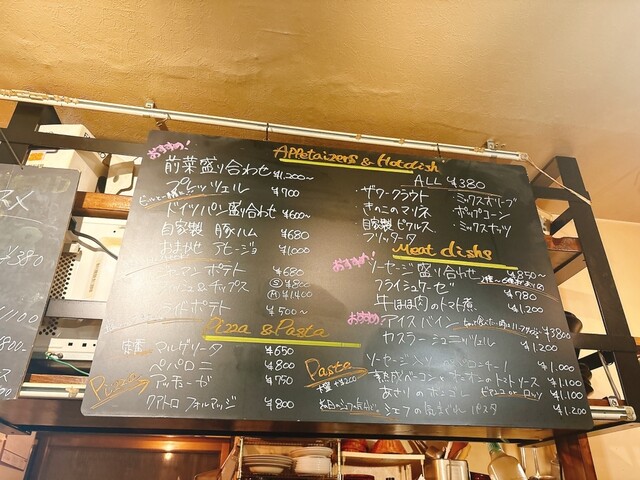 Appetaizers & Hotdish
おすすめ!
前菜盛り合わせ ¥1,200~
プレッツェル ¥700
ドイツパン盛り合わせ ¥600~
自家製 豚ハム ¥680
おまかせ アヒージョ ¥1,000
ポテト ¥680
&チップス Ⓢ¥800
Ⓜ¥1400
ポテト ¥500~
ALL ¥380
ザワークラウト ミックスオリーブ
きのこのマリネ ポップコーン
自家製ピクルス ミックスナッツ
フリッタータ
Meat dishs
おすすめ!
ソーセージ盛り合わせ ¥850~
フライシュケーゼ ¥780
牛ほほ肉のトマト煮 ¥1,200
おすすめ!
アイスバイン ¥3800
カスラー シュニッツェル ¥1,200
Pizza & Pasta
定番 マルゲリータ ¥650
ペパロニ ¥800
¥750
クアトロ フォルマッジ ¥800
Pizza
Pasta
ソーセージ入り ¥1.000
熟成ベーコンと のトマトソース ¥1,100
あさりのボンゴレ ビアンコ or ロッソ ¥1,100
シェフの気まぐれパスタ ¥1.200
メ
¥380